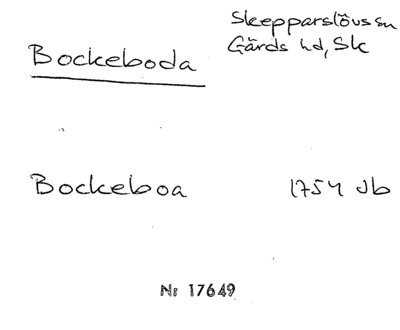 Bockeboda
Skepparslövs sn
Gärds hd, Sk
Bockeboa 1754 Jb
Nr 17649